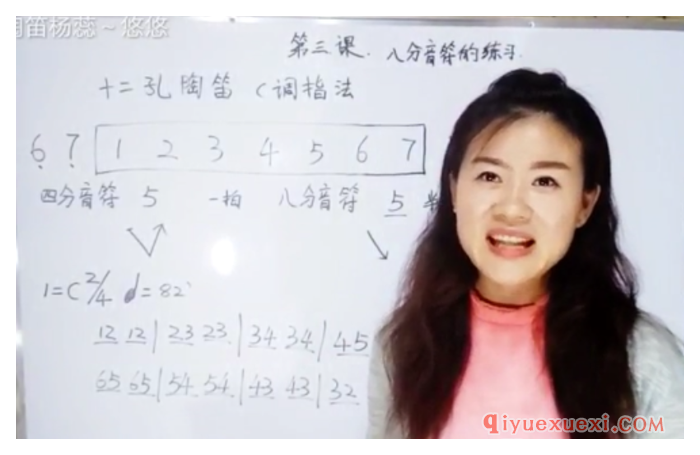 陶笛杨蕊~悠悠
第三课. 八分音符的练习.
十二孔陶笛 C调指法
6 7 1 2 3 4 5 6 7
四分音符 5 一拍 八分音符 5
1=C 2/4 ♩=82
12 12 | 23 23 | 34 34 | 45
65 65 | 54 54 | 43 43 | 32
qiyuexuexi.COM